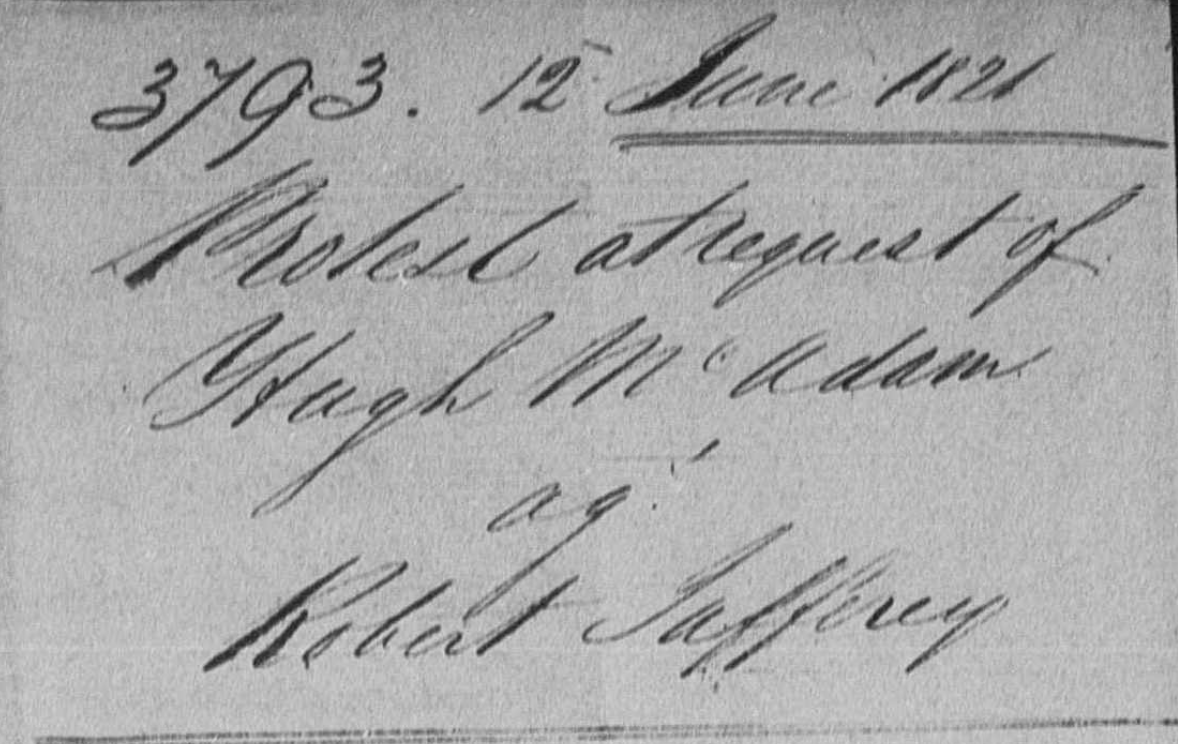 3793. 12 June 1821
Protest at request of
Hugh McAdam
agt
Robert Jafferey